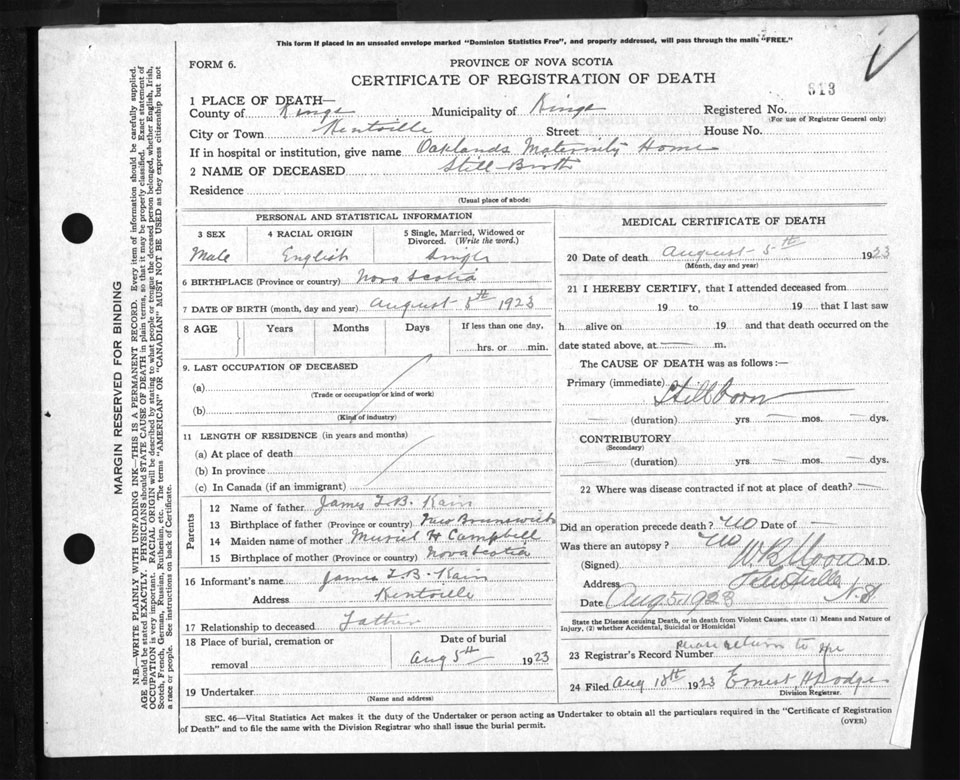 This form if placed in an unsealed envelope marked "Dominion Statistics Free", and properly addressed, will pass through the mails "FREE."
FORM 6.
PROVINCE OF NOVA SCOTIA
CERTIFICATE OF REGISTRATION OF DEATH
1 PLACE OF DEATH—
County of Kings Municipality of Kings Registered No. 813
(For use of Registrar General only)
City or Town Kentville Street House No.
If in hospital or institution, give name Oaklands Maternity Home
2 NAME OF DECEASED Still Birth
Residence
(Usual place of abode)
PERSONAL AND STATISTICAL INFORMATION
3 SEX 4 RACIAL ORIGIN 5 Single, Married, Widowed or Divorced. (Write the word.)
Male English Single
6 BIRTHPLACE (Province or country) Nova Scotia
7 DATE OF BIRTH (month, day and year) August 5th 1923
8 AGE Years Months Days If less than one day,
hrs. or min.
9. LAST OCCUPATION OF DECEASED
(a)
(Trade or occupation or kind of work)
(b)
(Kind of industry)
11 LENGTH OF RESIDENCE (in years and months)
(a) At place of death
(b) In province
(c) In Canada (if an immigrant)
Parents
12 Name of father James L.B. Kain
13 Birthplace of father (Province or country) New Brunswick
14 Maiden name of mother Muriel H Campbell
15 Birthplace of mother (Province or country) Nova Scotia
16 Informant's name James L.B. Kain
Address Kentville
17 Relationship to deceased Father
18 Place of burial, cremation or removal
Date of burial
Aug 5th 1923
19 Undertaker
(Name and address)
MEDICAL CERTIFICATE OF DEATH
20 Date of death August 5th 1923
(Month, day and year)
21 I HEREBY CERTIFY, that I attended deceased from
19 to 19 that I last saw
h alive on 19 and that death occurred on the
date stated above, at — m.
The CAUSE OF DEATH was as follows :—
Primary (immediate) Stillborn
— (duration) — yrs — mos. — dys.
CONTRIBUTORY
(Secondary)
— (duration) — yrs. — mos. — dys.
22 Where was disease contracted if not at place of death? —
Did an operation precede death? No Date of —
Was there an autopsy? No
(Signed) W.B. Moore M.D.
Address Kentville N.S
Date Aug 5 1923
State the Disease causing Death, or in death from Violent Causes, state (1) Means and Nature of
Injury, (2) whether Accidental, Suicidal or Homicidal
23 Registrar's Record Number Please return to me
24 Filed Aug 18th 1923 Ernest H Dodge
Division Registrar.
SEC. 46—Vital Statistics Act makes it the duty of the Undertaker or person acting as Undertaker to obtain all the particulars required in the "Certificate of Registration
of Death" and to file the same with the Division Registrar who shall issue the burial permit.
(OVER)
MARGIN RESERVED FOR BINDING
N.B.—WRITE PLAINLY WITH UNFADING INK—THIS IS A PERMANENT RECORD. Every item of information should be carefully supplied.
AGE should be stated EXACTLY. PHYSICIANS should STATE CAUSE OF DEATH in plain terms, so that it may be properly classified. Exact statement of
OCCUPATION is very important. RACIAL ORIGIN will be described by stating to what people or tongue the deceased person belonged, whether English, Irish,
Scotch, French, German, Russian, Ruthenian, etc. The terms "AMERICAN" OR "CANADIAN" MUST NOT BE USED as they express citizenship but not
a race or people. See instructions on back of Certificate.